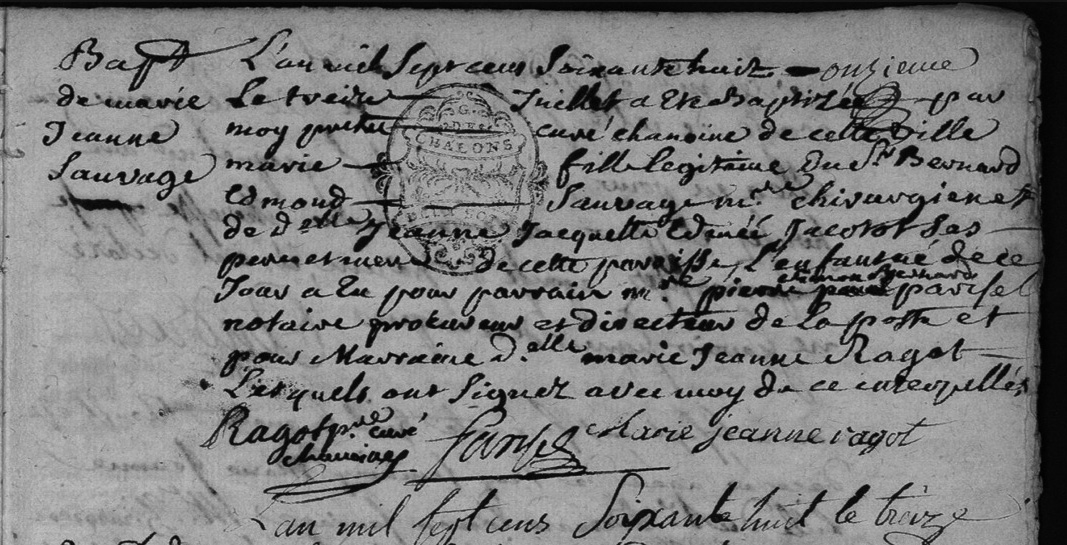 Bapt
de marie
Jeanne
Sauvage
L'an mil Sept cens Soixante huit onzieme
Le treize Juillet a Ete Baptizée par
moy pretre curé chanoine de cette ville
marie fille legitime du Sr Bernard
Edmond Sauvage me. chirurgien et
de delle Jeanne Jacquette Edmée Jacotot Ses
pere et mere de cette paroisse, L'enfant né de ce
Jour a Eu pour parrain mre pierre parisel
simon Bernard
notaire procureur et directeur de la poste et
pour Marraine d.elle marie Jeanne Ragot
Lesquels ont Signez avec moy de ce interpellés
Ragot ptre curé
chanoine
Marie jeanne ragot
G. DE
CHALONS
L'an mil sept cens Soixante huit le treize